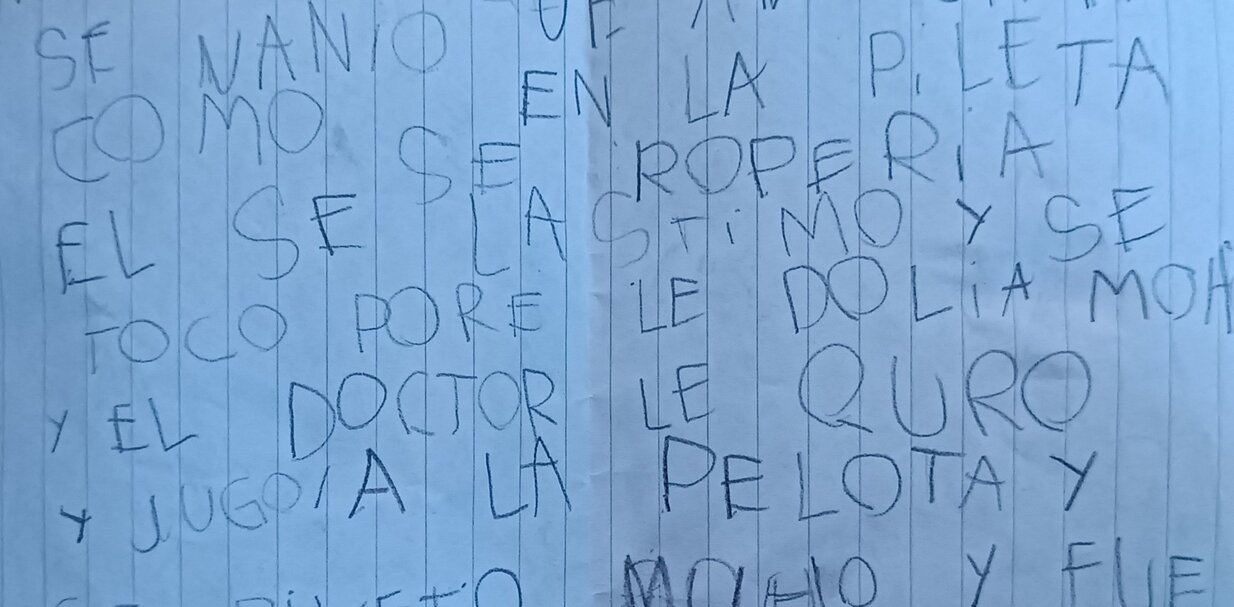 SE NANIO EN LA PILETA
COMO SE ROPERIA
EL SE LASTIMO Y SE
TOCO PORE LE DOLIA MOH
Y EL DOCTOR LE QURO
Y JUGO A LA PELOTA Y
MOHO Y FUE